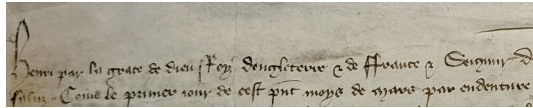 Henri par la grace de dieu Roy Dengleterre & de ffrance & Seignur d
saluz Come le primer iour de cest pnt moys de mars par endenture